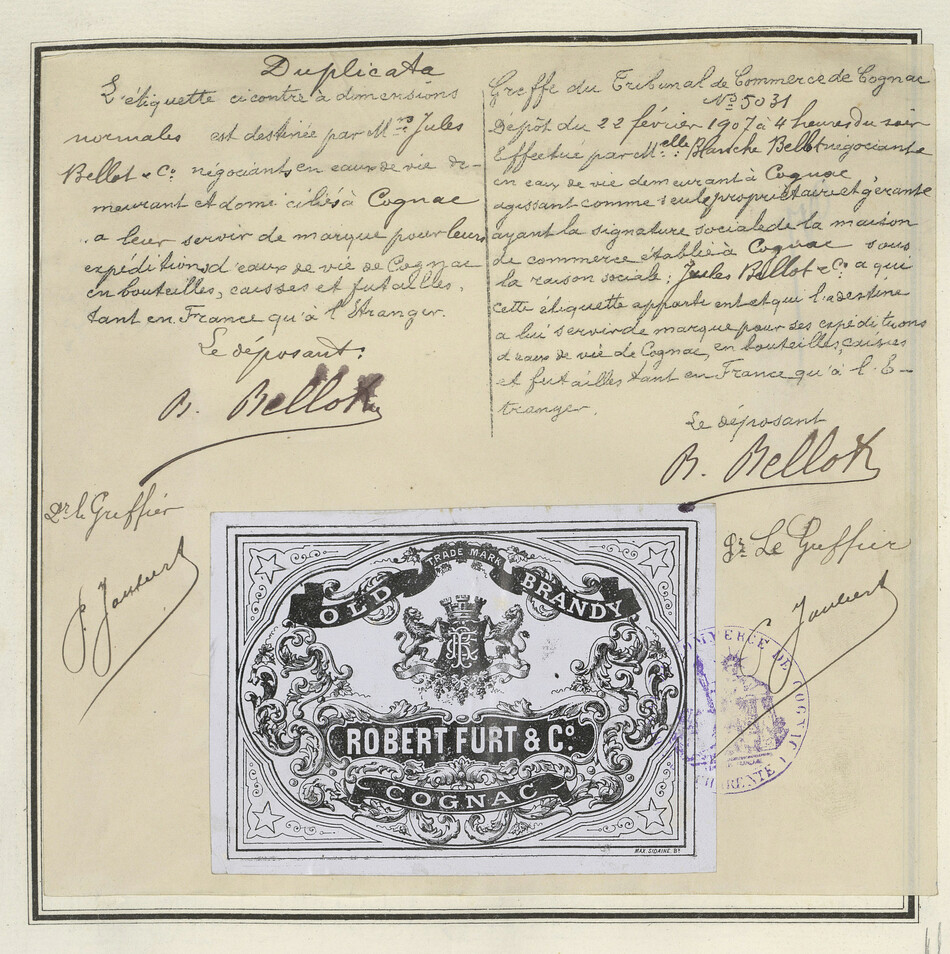 Duplicata
L'étiquette ci contre à dimensions
normales est destinée par Mrs Jules
Bellot & Co négociants en eaux de vie de-
meurant et domiciliés à Cognac
a leur servir de marque pour leurs
expéditions d'eaux de vie de Cognac
en bouteilles, caisses et futailles,
tant en France qu'à l'Étranger.
Le déposant:
B. Bellot
Pr le Greffier
J. Joubert
Greffe du Tribunal de Commerce de Cognac
No 5031
Dépôt du 22 février 1907 à 4 heures du soir
Effectué par Melle Blanche Bellot négociante
en eaux de vie demeurant à Cognac
agissant comme seule propriétaire et gérante
ayant la signature sociale de la maison
de commerce établie à Cognac sous
la raison sociale: Jules Bellot & Co a qui
cette étiquette appartient et qui l'a destine
a lui servir de marque pour ses expéditions
d'eaux de vie de Cognac, en bouteilles, caisses
et futailles tant en France qu'à l'É-
tranger.
Le déposant
B. Bellot
Pr Le Greffier
J. Joubert
TRADE MARK
OLD BRANDY
ROBERT FURT & Co.
COGNAC
MAX. SIDAINE. Bx
COMMERCE DE COGNAC
CHARENTE